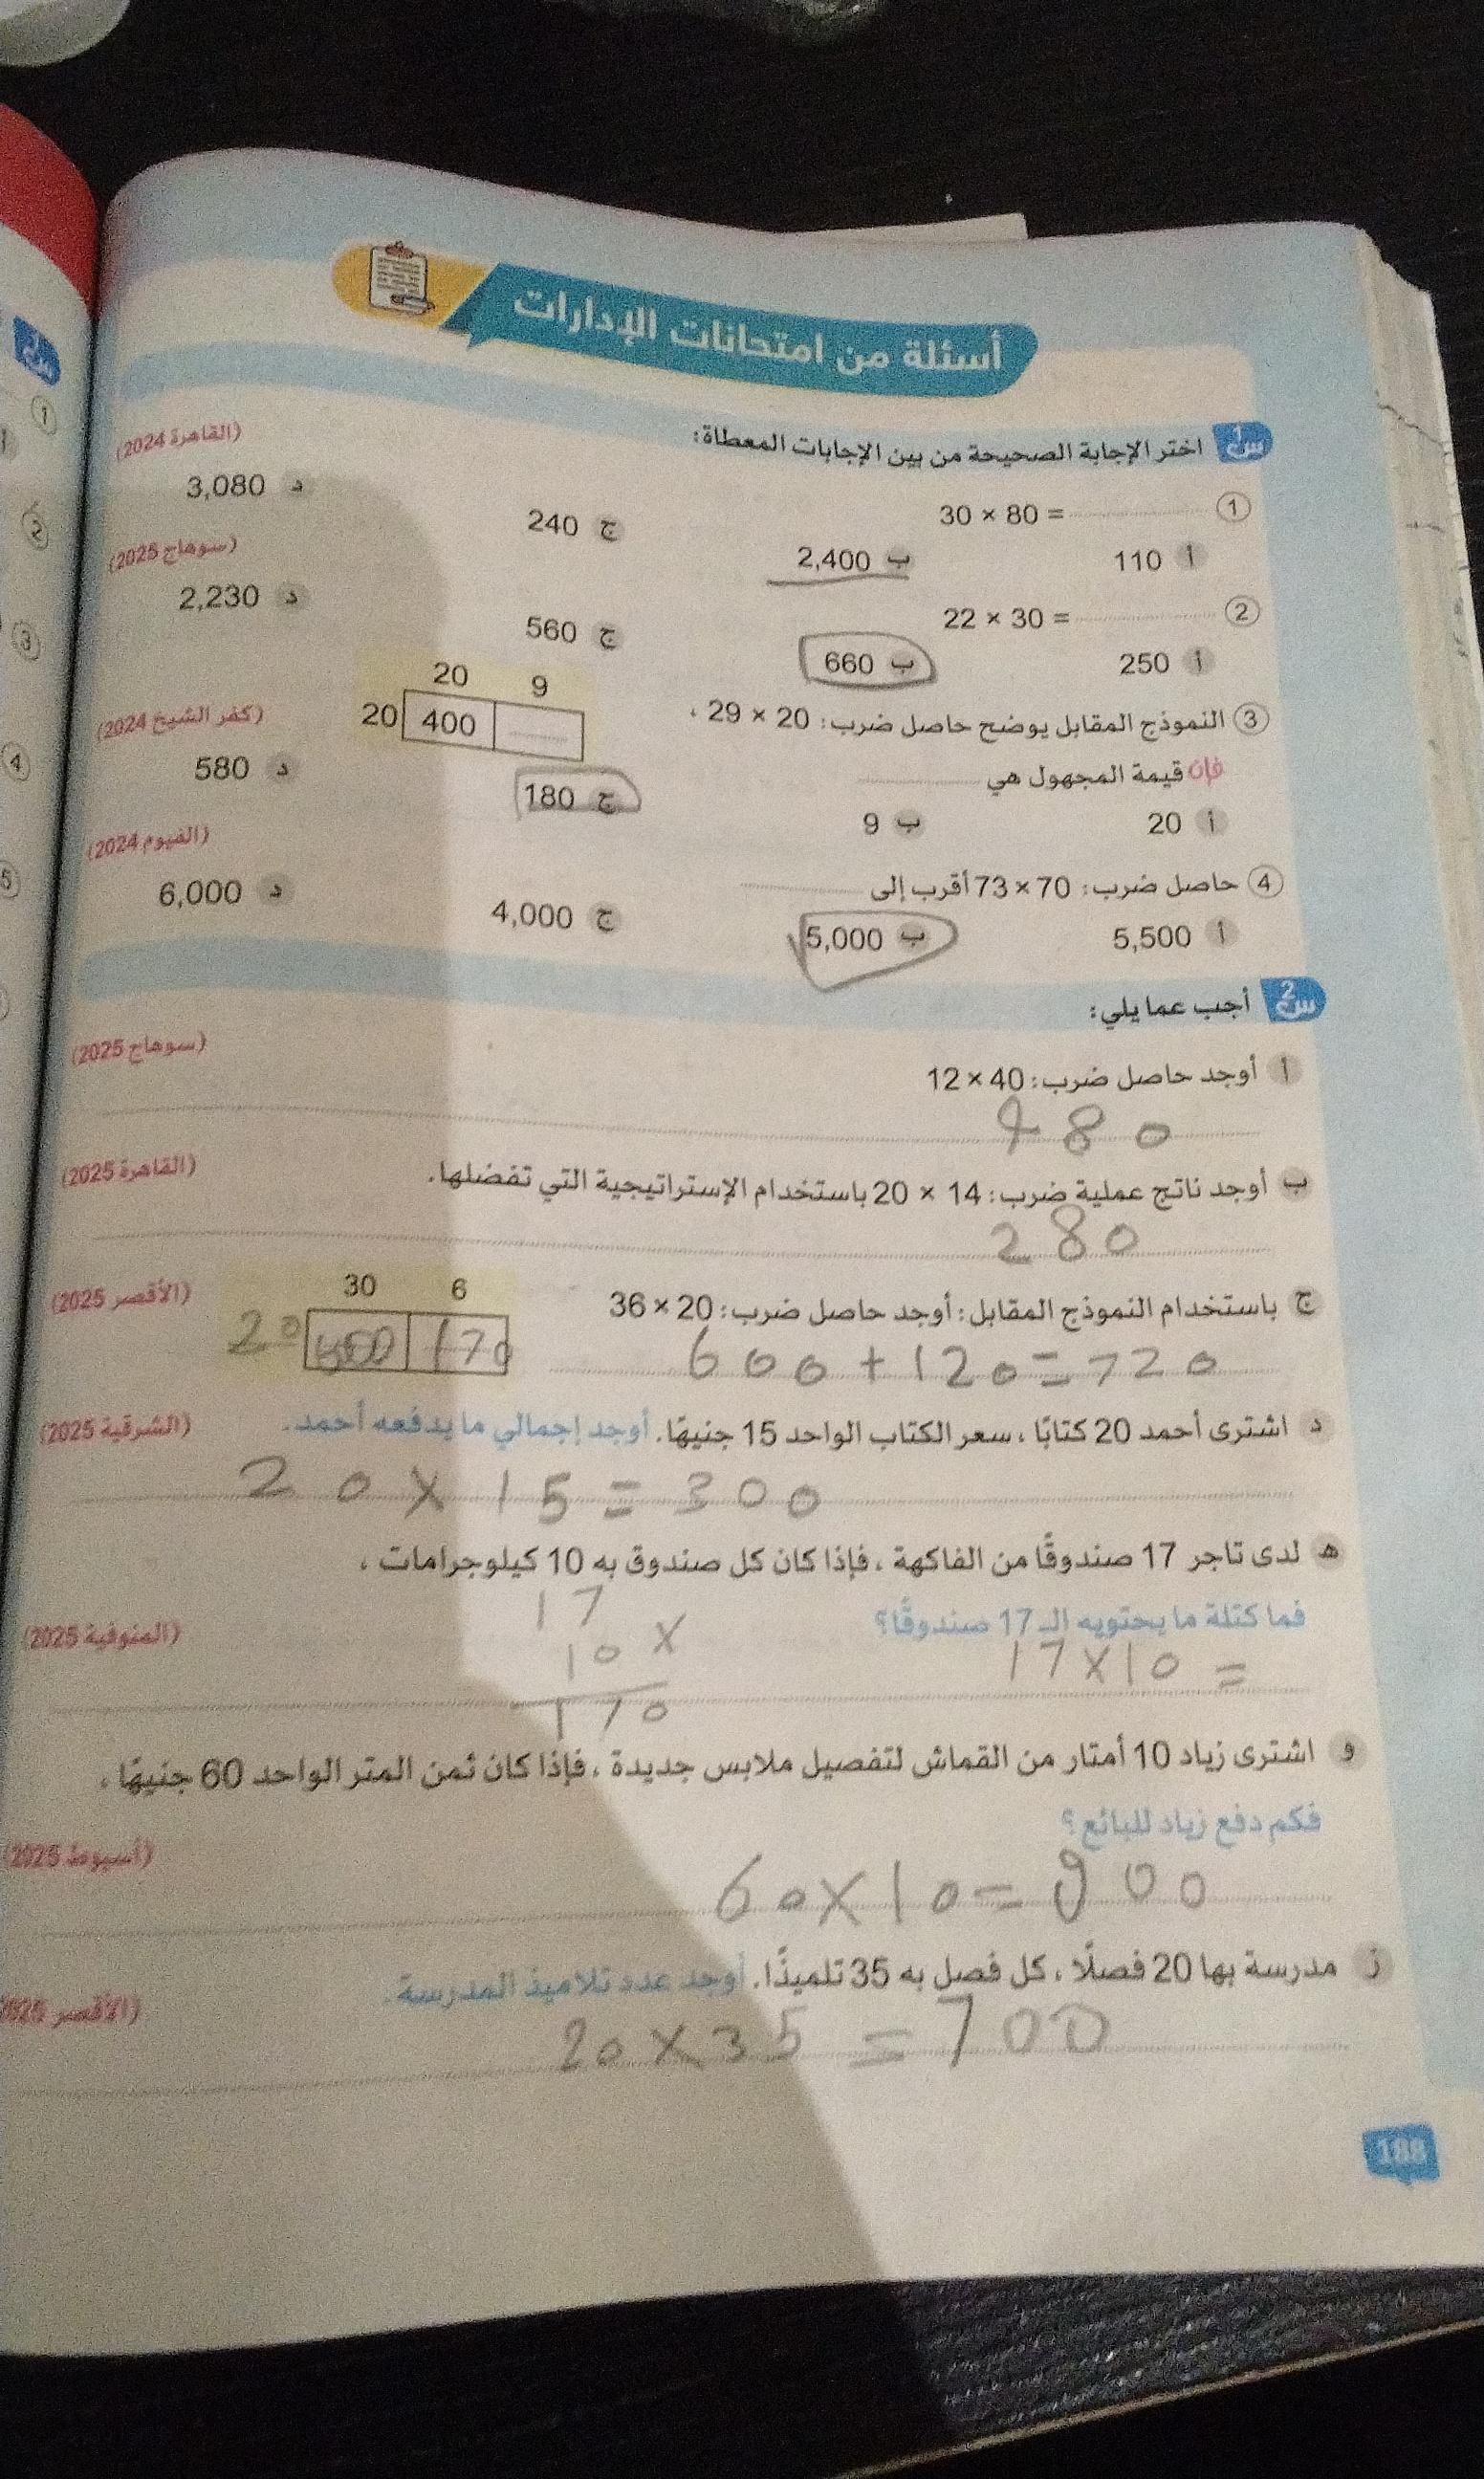 أسئلة من امتحانات الإدارات
س1 اختر الإجابة الصحيحة من بين الإجابات المعطاة:
(القاهرة 2024)
① 30 × 80 =
أ 110 ب 2,400 ج 240 د 3,080
(سوهاج 2025)
② 22 × 30 =
أ 250 ب 660 ج 560 د 2,230
③ النموذج المقابل يوضح حاصل ضرب: 20 × 29 ،
20 9
20 400
(كفر الشيخ 2024)
فإن قيمة المجهول هي
أ 20 ب 9 ج 180 د 580
(الفيوم 2024)
④ حاصل ضرب: 70 × 73 أقرب إلى
أ 5,500 ب 5,000 ج 4,000 د 6,000
س2 أجب عما يلي:
أ أوجد حاصل ضرب: 40 × 12 (سوهاج 2025)
480
ب أوجد ناتج عملية ضرب: 14 × 20 باستخدام الإستراتيجية التي تفضلها. (القاهرة 2025)
280
ج باستخدام النموذج المقابل: أوجد حاصل ضرب: 20 × 36 (الأقصر 2025)
30 6
20
600 + 120 = 720
د اشترى أحمد 20 كتابًا ، سعر الكتاب الواحد 15 جنيهًا. أوجد إجمالي ما يدفعه أحمد. (الشرقية 2025)
20 × 15 = 300
ه لدى تاجر 17 صندوقًا من الفاكهة ، فإذا كان كل صندوق به 10 كيلوجرامات ،
فما كتلة ما يحتويه الـ 17 صندوقًا؟ (المنوفية 2025)
17 × 10 =
17
10 ×
170
و اشترى زياد 10 أمتار من القماش لتفصيل ملابس جديدة ، فإذا كان ثمن المتر الواحد 60 جنيهًا ،
فكم دفع زياد للبائع؟ (أسيوط 2025)
60 × 10 =
ز مدرسة بها 20 فصلًا ، كل فصل به 35 تلميذًا. أوجد عدد تلاميذ المدرسة. (الأقصر 2025)
20 × 35 = 700
188